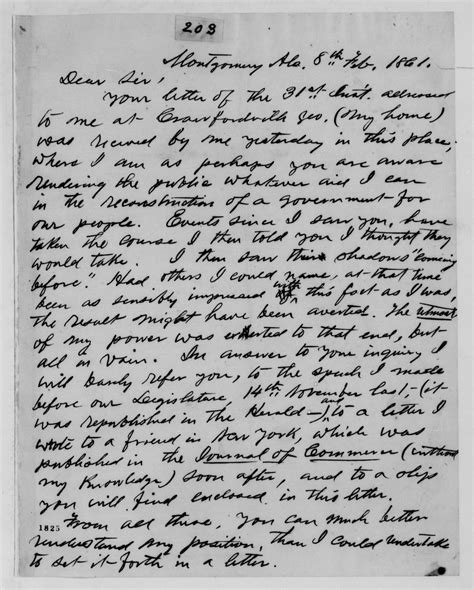 203
Montgomery Ala. 8th Feb. 1861.
Dear Sir,
Your letter of the 31st Inst. adressed
to me at Crawfordville Geo. (my home)
was received by me yesterday in this place,
where I am as perhaps you are aware
rendering the public whatever aid I can
in the reconstruction of a government for
our people. Events since I saw you, have
taken the course I then told you I thought they
would take. I then saw their shadows "coming
before." Had others I could name, at that time
been as sensibly impressed with this fact as I was,
the result might have been averted. The utmost
of my power was exerted to that end, but
all in vain. In answer to your inquiry I
will barely refer you, to the speech I made
before our Legislature, 14th November last, (it
was republished in the Herald—) to a letter I
wrote to a friend in New York, which was
published in the Journal of Commerce (without
my knowledge) soon after, and to a slip
you will find enclosed in this letter.
1825
From all these, you can much better
understand my position, than I could undertake
to set it forth in a letter.